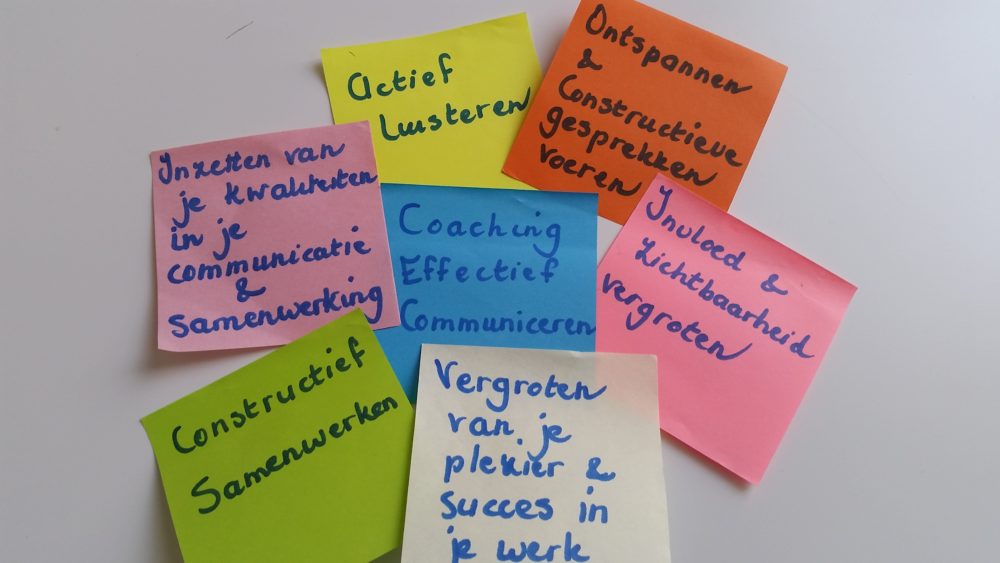 Actief
Luisteren
Ontspannen
&
Constructieve
gesprekken
voeren
Inzetten van
je kwaliteiten
in je
communicatie
&
Samenwerking
Coaching
Effectief
Communiceren
Invloed &
Zichtbaarheid
vergroten
Constructief
Samenwerken
Vergroten
van je
plezier &
succes in
je werk